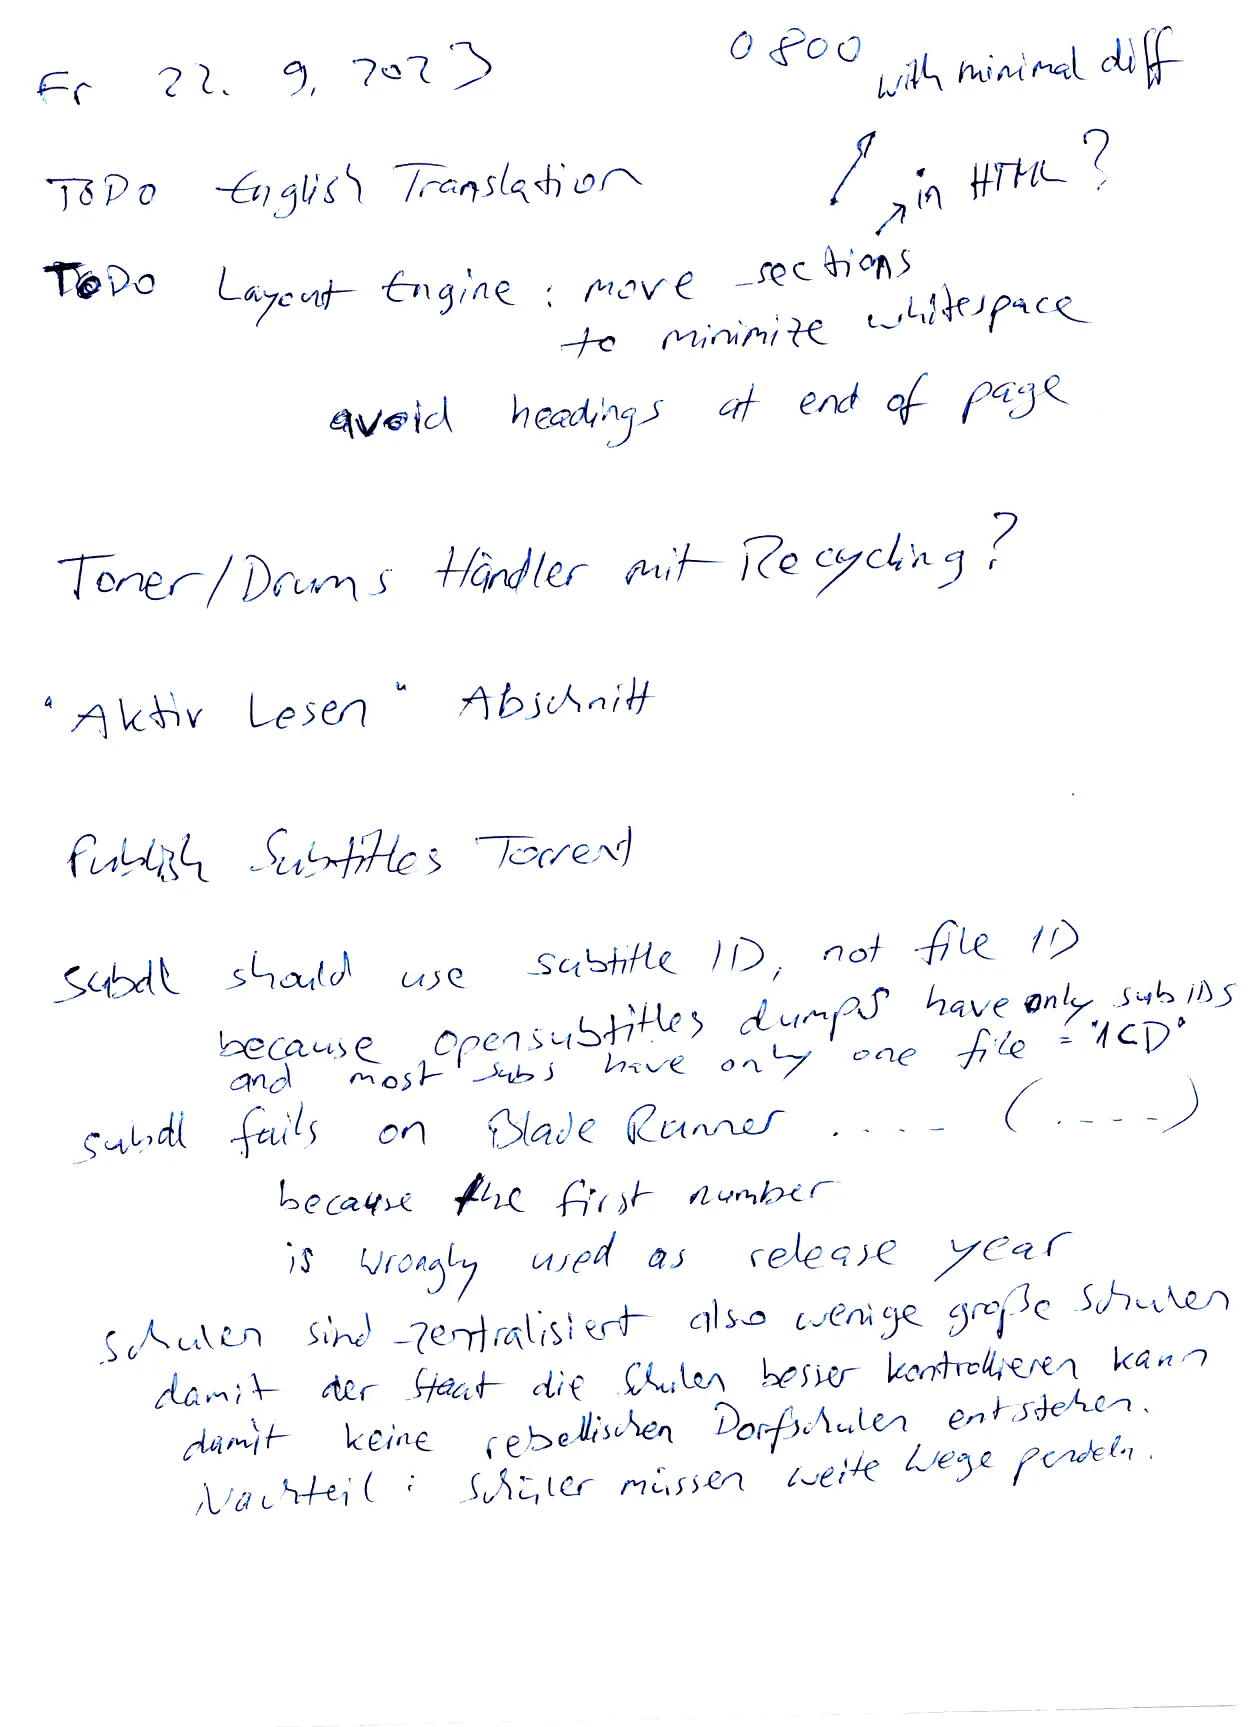 Fr 22. 9. 2023 0800
with minimal diff
TODO English Translation
in HTML?
TODO Layout Engine: move sections
to minimize whitespace
avoid headings at end of page
Toner/Drums Händler mit Recycling?
"Aktiv Lesen" Abschnitt
Publish Subtitles Torrent
subdl should use subtitle ID, not file ID
because opensubtitles dumps have only sub IDs
and most subs have only one file = "1CD"
subdl fails on Blade Runner .... (....)
because the first number
is wrongly used as release year
Schulen sind zentralisiert also wenige große Schulen
damit der Staat die Schulen besser kontrollieren kann
damit keine rebellischen Dorfschulen entstehen.
Nachteil: Schüler müssen weite Wege pendeln.